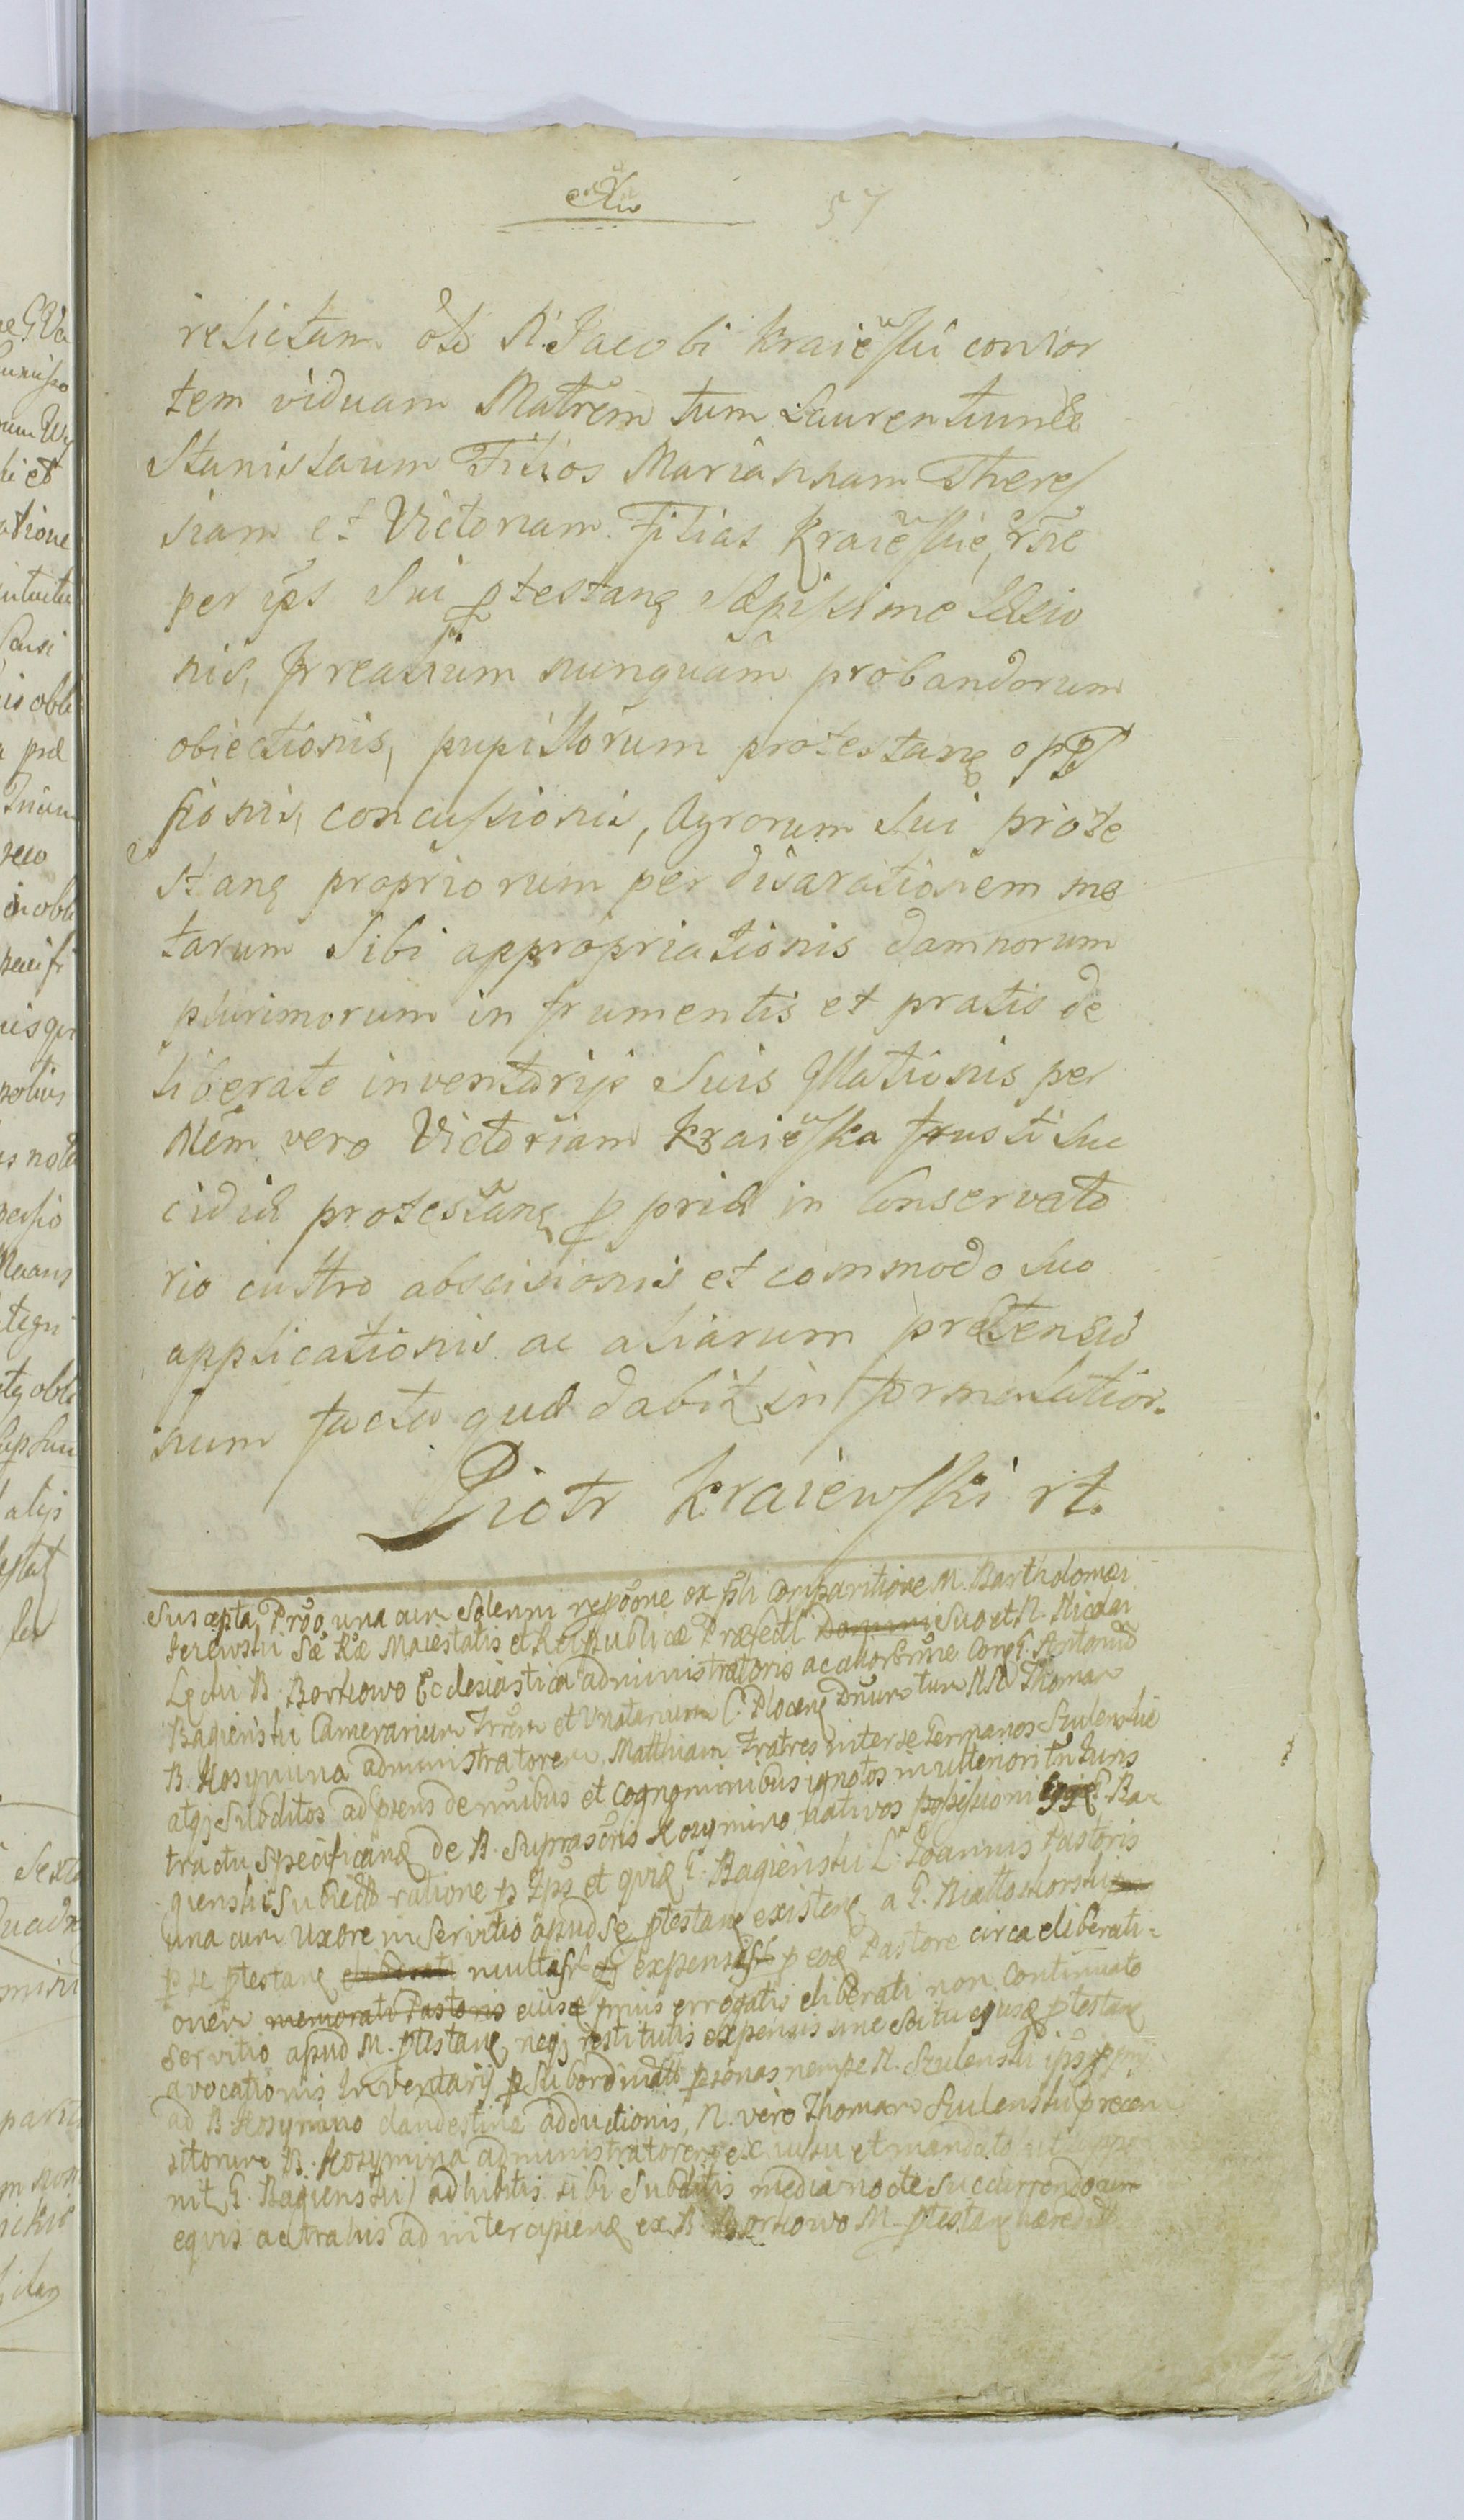 57
relictam olt N. Jacobi Kraiewski consor
tem viduam Matrem tum Laurentium &
Stanislaum Filios Mariannam There
siam et Victoriam Filias Kraiewskie, rñe
per ips Sui ptestanę sæpissime læsio
nis, irrealium nunquam probandorum
obiectionis, pupillorum protestanę opp
ssionis, concussionis, Agrorum Sui prote
stanę propriorum per disarationem me
tarum Sibi appropriationis damnorum
plurimorum in frumentis et pratis de
liberate inventarijs Suis illationis per
Nem vero Victoriam Kraiewska frusti Suc
cidiæ protestanę ppriæ in Conservato
rio cultro abscisionis et commodo suo
applicationis ac aliarum prætensio
num facta quæ dabit in formulatior.
Piotr Kraiewski rt.
Suscepta Proo una cum Solenni repõone ex pli Comparitione M. Bartholomæi
Jezewski Sæ Ræ Maiestatis et Reipublicæ Præfecti Suo et N. Nicolai
B. Borkowo Ecclesiastica administratoris ac alior nne Con G. Antonium
Bagienski Camerarium Trrem et Vnotarium C. Plocenę Dnum tum NN Thomam
B. Kosymina administratorem, Matthiam Fratres inter se Germanos Szulenskie
atq; Subditos ad præns de nnibus et Cognominibus ignotos in ulteriori tñ Juris
tractu Specificanę de B. Suprascris Kosymino nativos possessioni G. Ba
gienski Subiectos ratione p Ips et quią G. Bagienski L. Joannis Pastoris
una cum Uxore in Servitio apud Se ptestanę existenę a G. Nialtoskorski
p se ptestanę eliberati multasꝗ expensis p eoę Pastore circa eliberati-
onem memorati Pastoris eiusę prius errogatis eliberati non Continuato
Servitio apud M. ptestanę, neq; restitutis expensis sine Scitu ejusę ptestanę
avocationis Inventarij p Subordinatas psonas nempe N. Szulenski ips pprij
ad B. Kosymino clandestinæ adductionis, N. vero Thomam Szulenski præcon
sitorum B. Kosymina administratorem ex iussu et mandato uti sppo
nit G. Bagienski) adhibitis sibi Subditis media nocte Succurrendo cum
equis ac trahis ad intercipienę ex B. Borkowo M. ptestanę hæredit